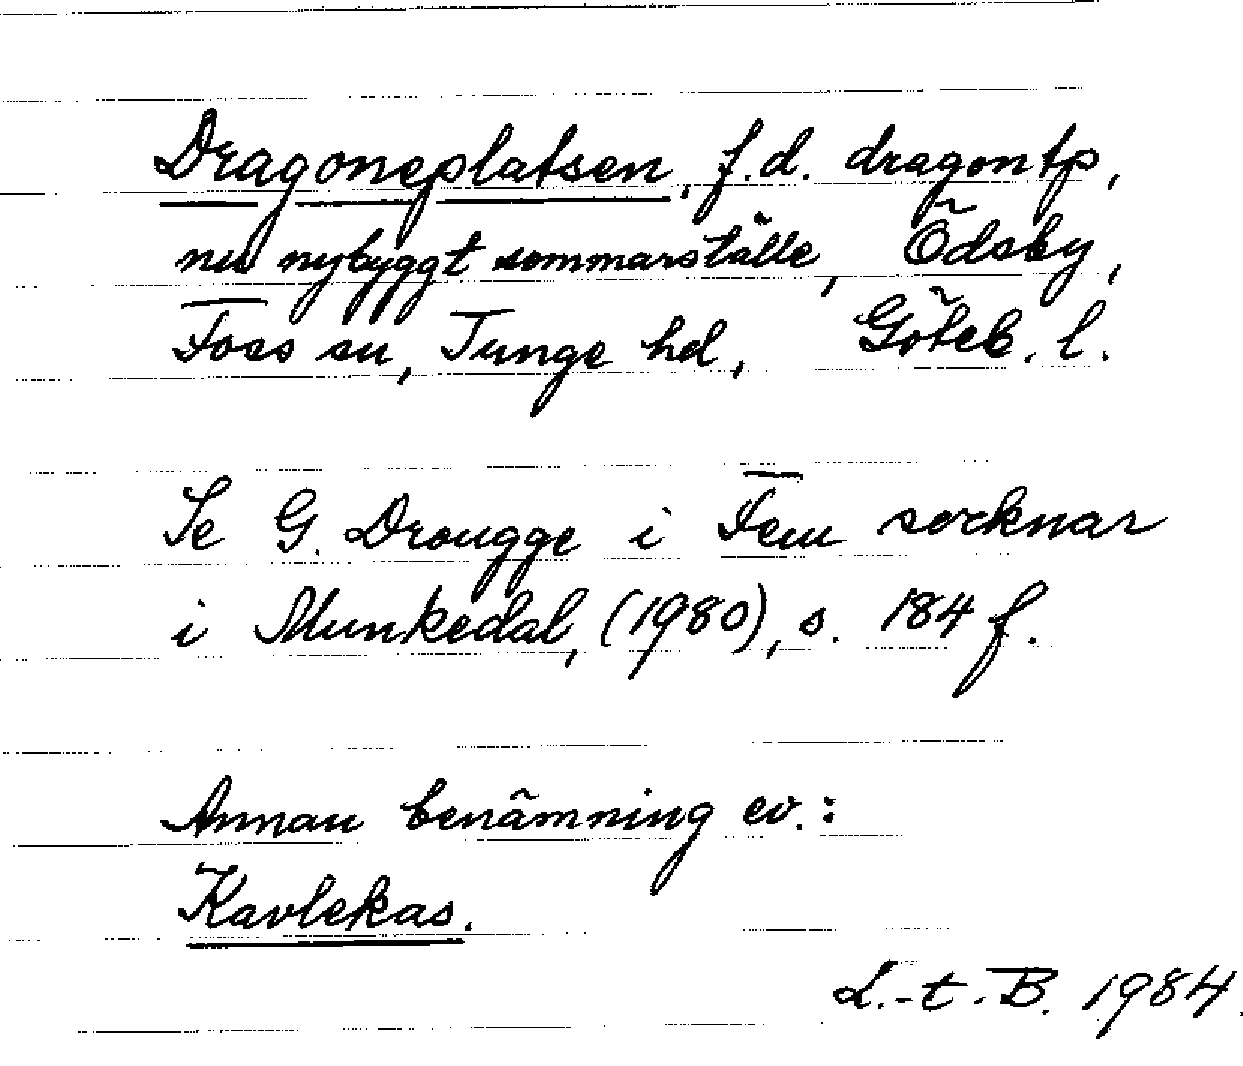 Dragoneplatsen, f.d. dragontp,
nu nybyggt sommarställe, Ödsby,
Foss sn, Tunge hd, Göteb. l.
Se G. Drougge i Fem socknar
i Munkedal, (1980), s. 184 f.
Annan benämning ev.:
Kavlekas.
L.-t. B. 1984.